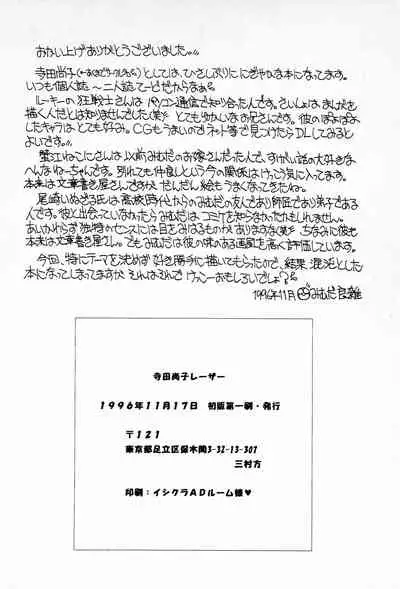 おかい上げありがとうございました。
寺田尚子としては、ひさしぶりににぎやかな本になってます。
いつも個人誌〜二人誌てーどだからなぁ。
ルーキーの狂戦士さんはパソコン通信で知り合った人です。さいしょはまんがを
描く人だとは知りませんでした(笑) とてもゆかいなお兄さんです。彼のぽよぽよ
したキャラはとても好み。CGもうまいのでネット等で見つけたらDLしてみると
よいです。
蟹江ねこにさんは以前みむだのお嫁さんだった人で、すけべい話の大好きな
へんなねーちゃんです。別れても仲良しという今の関係はけっこう気に入ってます。
本来は文章書き屋さんですが だんだん絵もうまくなってきたね。
尾崎いぬざる氏は高校時代からのみむだの友であり師匠であり弟子である
人です。彼と出会っていなかったらみむだはコミケを知らなかったかもしれません。
あいかわらず独特のセンスには目をみはるものがありますな(笑) ちなみに彼も
本来は文章書き屋。でもみむだは彼の味のある画風を高く評価しています。
今回、特にテーマを決めず好き勝手に描いてもらったので、結果混沌とした
本になってしまってますが それはそれでけっこーおもしろいでしょ?
1996年11月 みむだ良雑
寺田尚子レーザー
1996年11月17日 初版第一刷・発行
〒121
東京都足立区保木間3-32-13-307
三村方
印刷:イシクラADルーム様♥